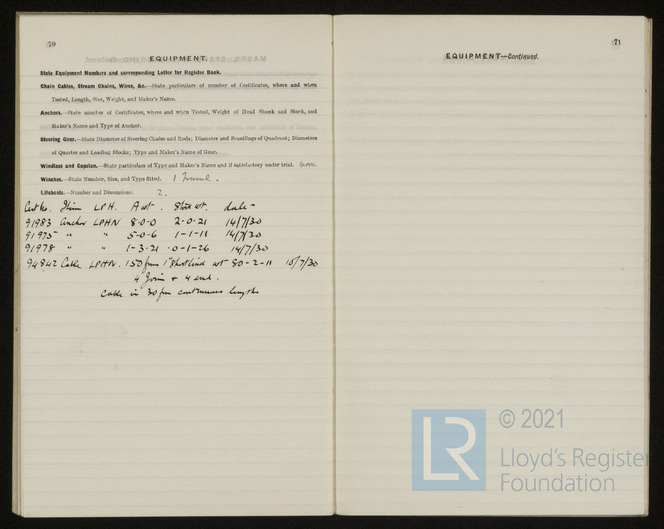 70
EQUIPMENT.
State Equipment Numbers and corresponding Letter for Register Book.
Chain Cables, Stream Chains, Wires, &c.—State particulars of number of Certificates, where and when
Tested, Length, Size, Weight, and Maker's Name.
Anchors.—State number of Certificates, where and when Tested, Weight of Head Shank and Stock, and
Maker's Name and Type of Anchor.
Steering Gear.—State Diameter of Steering Chains and Rods; Diameter and Scantlings of Quadrant; Diameters
of Quarter and Leading Blocks; Type and Maker's Name of Gear.
Windlass and Capstan.—State particulars of Type and Maker's Name and if satisfactory under trial.
Winches.—State Number, Size, and Type fitted. 1
Lifeboats.—Number and Dimensions. 2.
Cert No. Item LPH. A wt. Stock wt. date
91983 Anchor LPHN 8-0-0 2-0-21 14/7/30
91975 " " 5-0-6 1-1-11 14/7/30
91978 " " 1-3-21 0-1-26 14/7/30
94842 Cable LPHN. 150 fms 1" Short link wt 80-2-11 15/7/30
4 Join + 4 end.
Cable in 30 fm continuous lengths
71
EQUIPMENT—Continued.
LR
© 2021
Lloyd's Register
Foundation